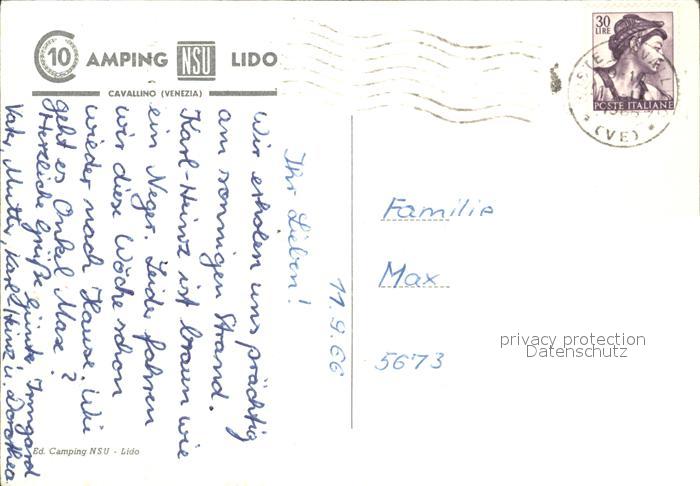 10 AMPING NSU LIDO
CAVALLINO (VENEZIA)
30
LIRE
POSTE ITALIANE
(VE)
11.9.66
Ihr Lieben!
Wir erholen uns prächtig
am sonnigen Strand.
Karl-Heinz ist braun wie
ein Neger. Leider fahren
wir diese Woche schon
wieder nach Hause. Wie
geht es Onkel Max?
Herzliche Grüße Irmgard
Vater, Mutter, Karl-Heinz u. Dorothea
Familie
Max
5673
privacy protection
Datenschutz
Ed. Camping NSU - Lido